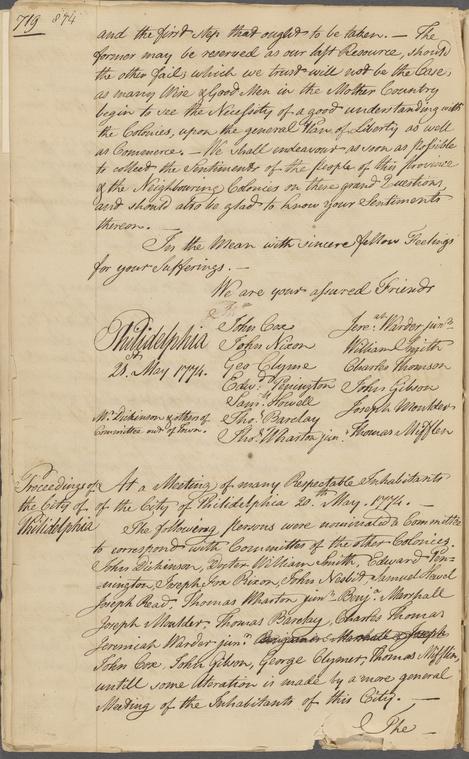 719 874
and the first step that ought to be taken. — The
former may be reserved as our last Resource, should
the other fail, which we trust will not be the Case,
as many Wise & Good Men in the Mother Country
begin to see the Necessity of a good understanding with
the Colonies, upon the general Plan of Liberty as well
as Commerce. — We shall endeavour as soon as possible
to collect the Sentiments of the people of this province
& the Neighbouring Colonies on these grand Questions,
and should also be glad to know your Sentiments
thereon. —
In the Mean with sincere fellow Feelings
for your Sufferings. —
We are your assured Friends
Philadelphia
21st May 1774.
Mr. Dickinson & others of
Committee out of Town.
John Cox
John Nixon
Geo Clyme
Edwd. Penington
Saml. Howell
Thos. Barclay
Thos. Wharton junr.
Jere. Warder junr.
William Smith
Charles Thomson
John Gibson
Joseph Moulder
Thomas Mifflen
Proceedings of
the City of
Philidelphia
At a Meeting of many Respectable Inhabitants
of the City of Philidelphia 20th May. 1774. —
The following persons were nominated a Committee
to correspond with Committees of the other Colonies.
John Dickinson, William Smith, Edward Pen-
nington, Joseph Fox John Nesbit Samuel Howel
Joseph Read, Thomas Wharton junr. Benja. Marshall
Joseph Moulder, Thomas Barclay, Charles Thomas
Jeremiah Warder junr. Benjamin Marshale & Joseph
John Cox, John Gibson, George Clymer, Thomas Mifflen,
untill some alteration is made by a more general
Meeting of the Inhabitants of this City. —
The